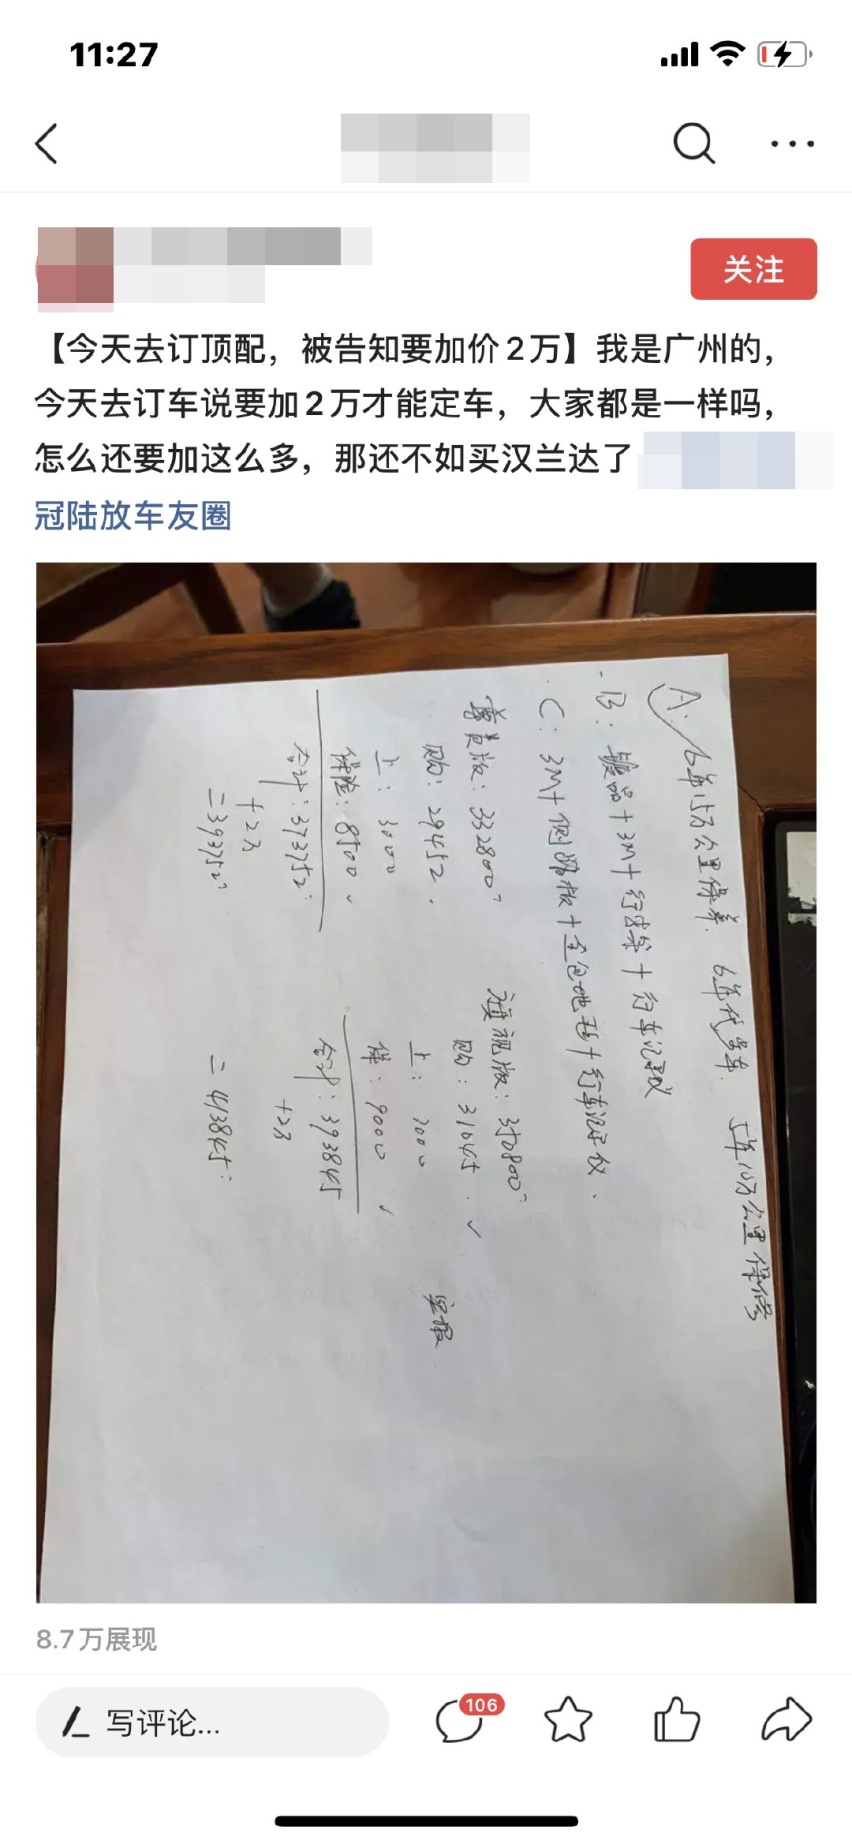 11:27
关注
【今天去订顶配，被告知要加价2万】我是广州的，
今天去订车说要加2万才能定车，大家都是一样吗，
怎么还要加这么多，那还不如买汉兰达了
冠陆放车友圈
A. 6年15万公里保养. 6年代步车. 5年10万公里保修
B: 镀晶+3M+行李架+行车记录仪
C: 3M+侧踏板+全包地毯+行车记录仪.
尊贵版: 332800
购: 29452.
上: 3000
保险: 8500
合计: 373752
+2万
=393752
旗舰版: 350800
购: 31045.
上: 3000
保: 9000
合计: 393845
+2万
=413845
8.7万展现
写评论...
106